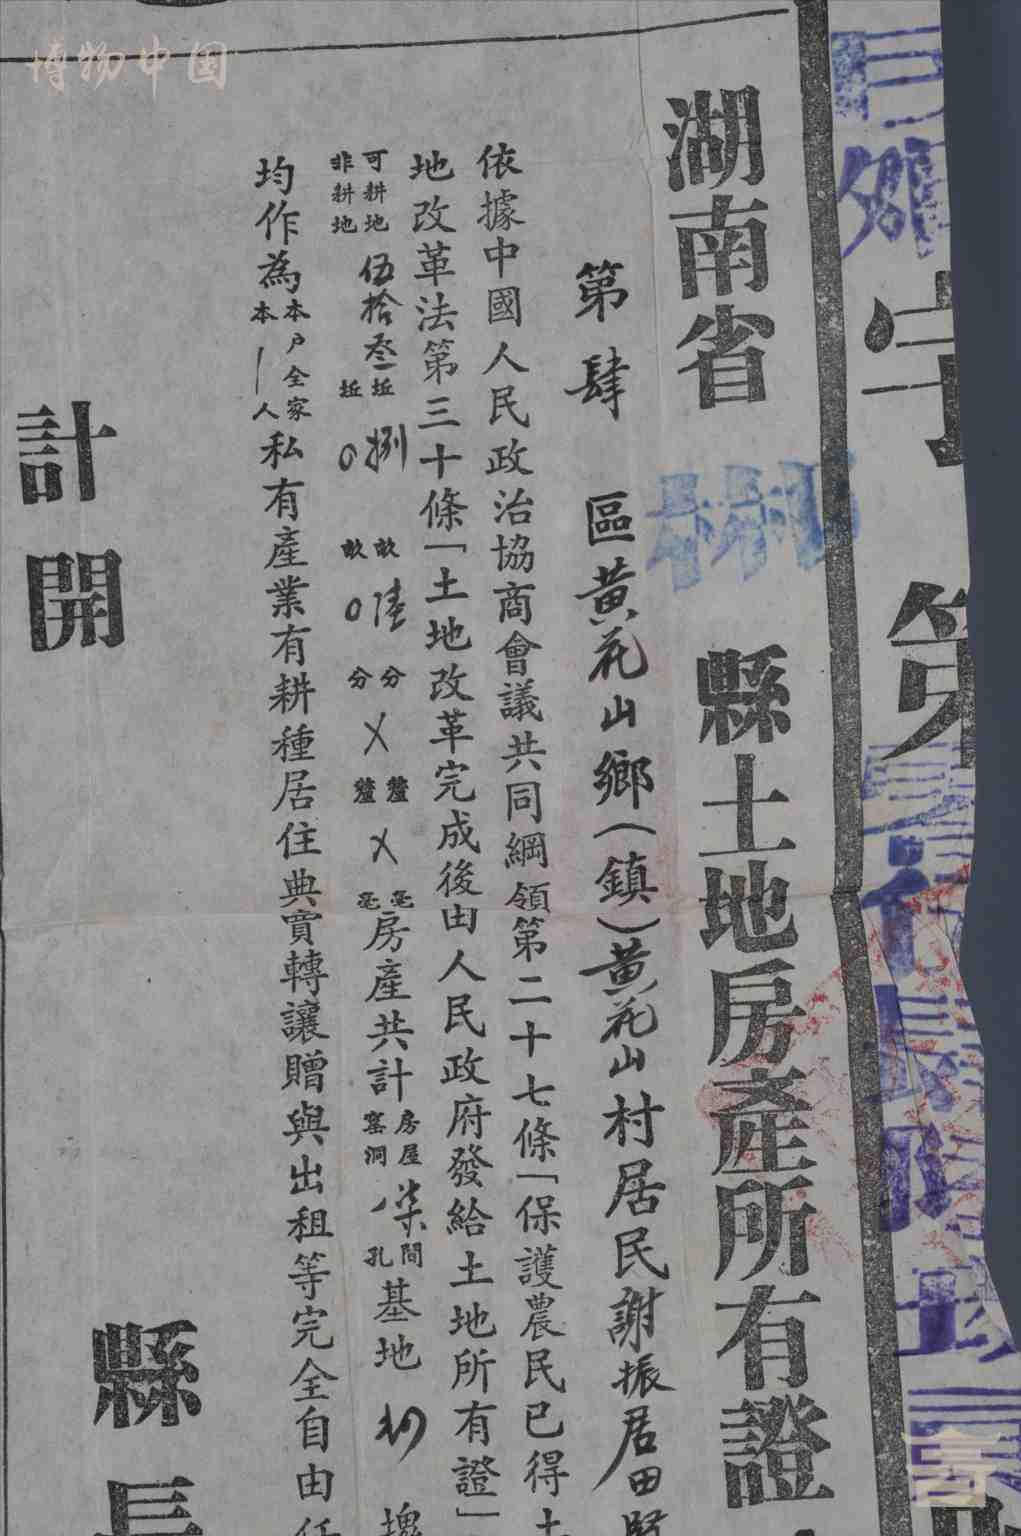 博物中国
字第
湖南省郴縣土地房產所有證
第肆區黃花山鄉(鎮)黃花山村居民謝振居田
依據中國人民政治協商會議共同綱領第二十七條「保護農民已得土
地改革法第三十條「土地改革完成後由人民政府發給土地所有證」
可耕地伍拾叁坵捌畝陸分乂釐乂毫房產共計房屋柒間基地
非耕地坵0畝0分釐毫窰洞孔塊
均作為本戶全家私有產業有耕種居住典賣轉讓贈與出租等完全自由任
本人
計開
縣長